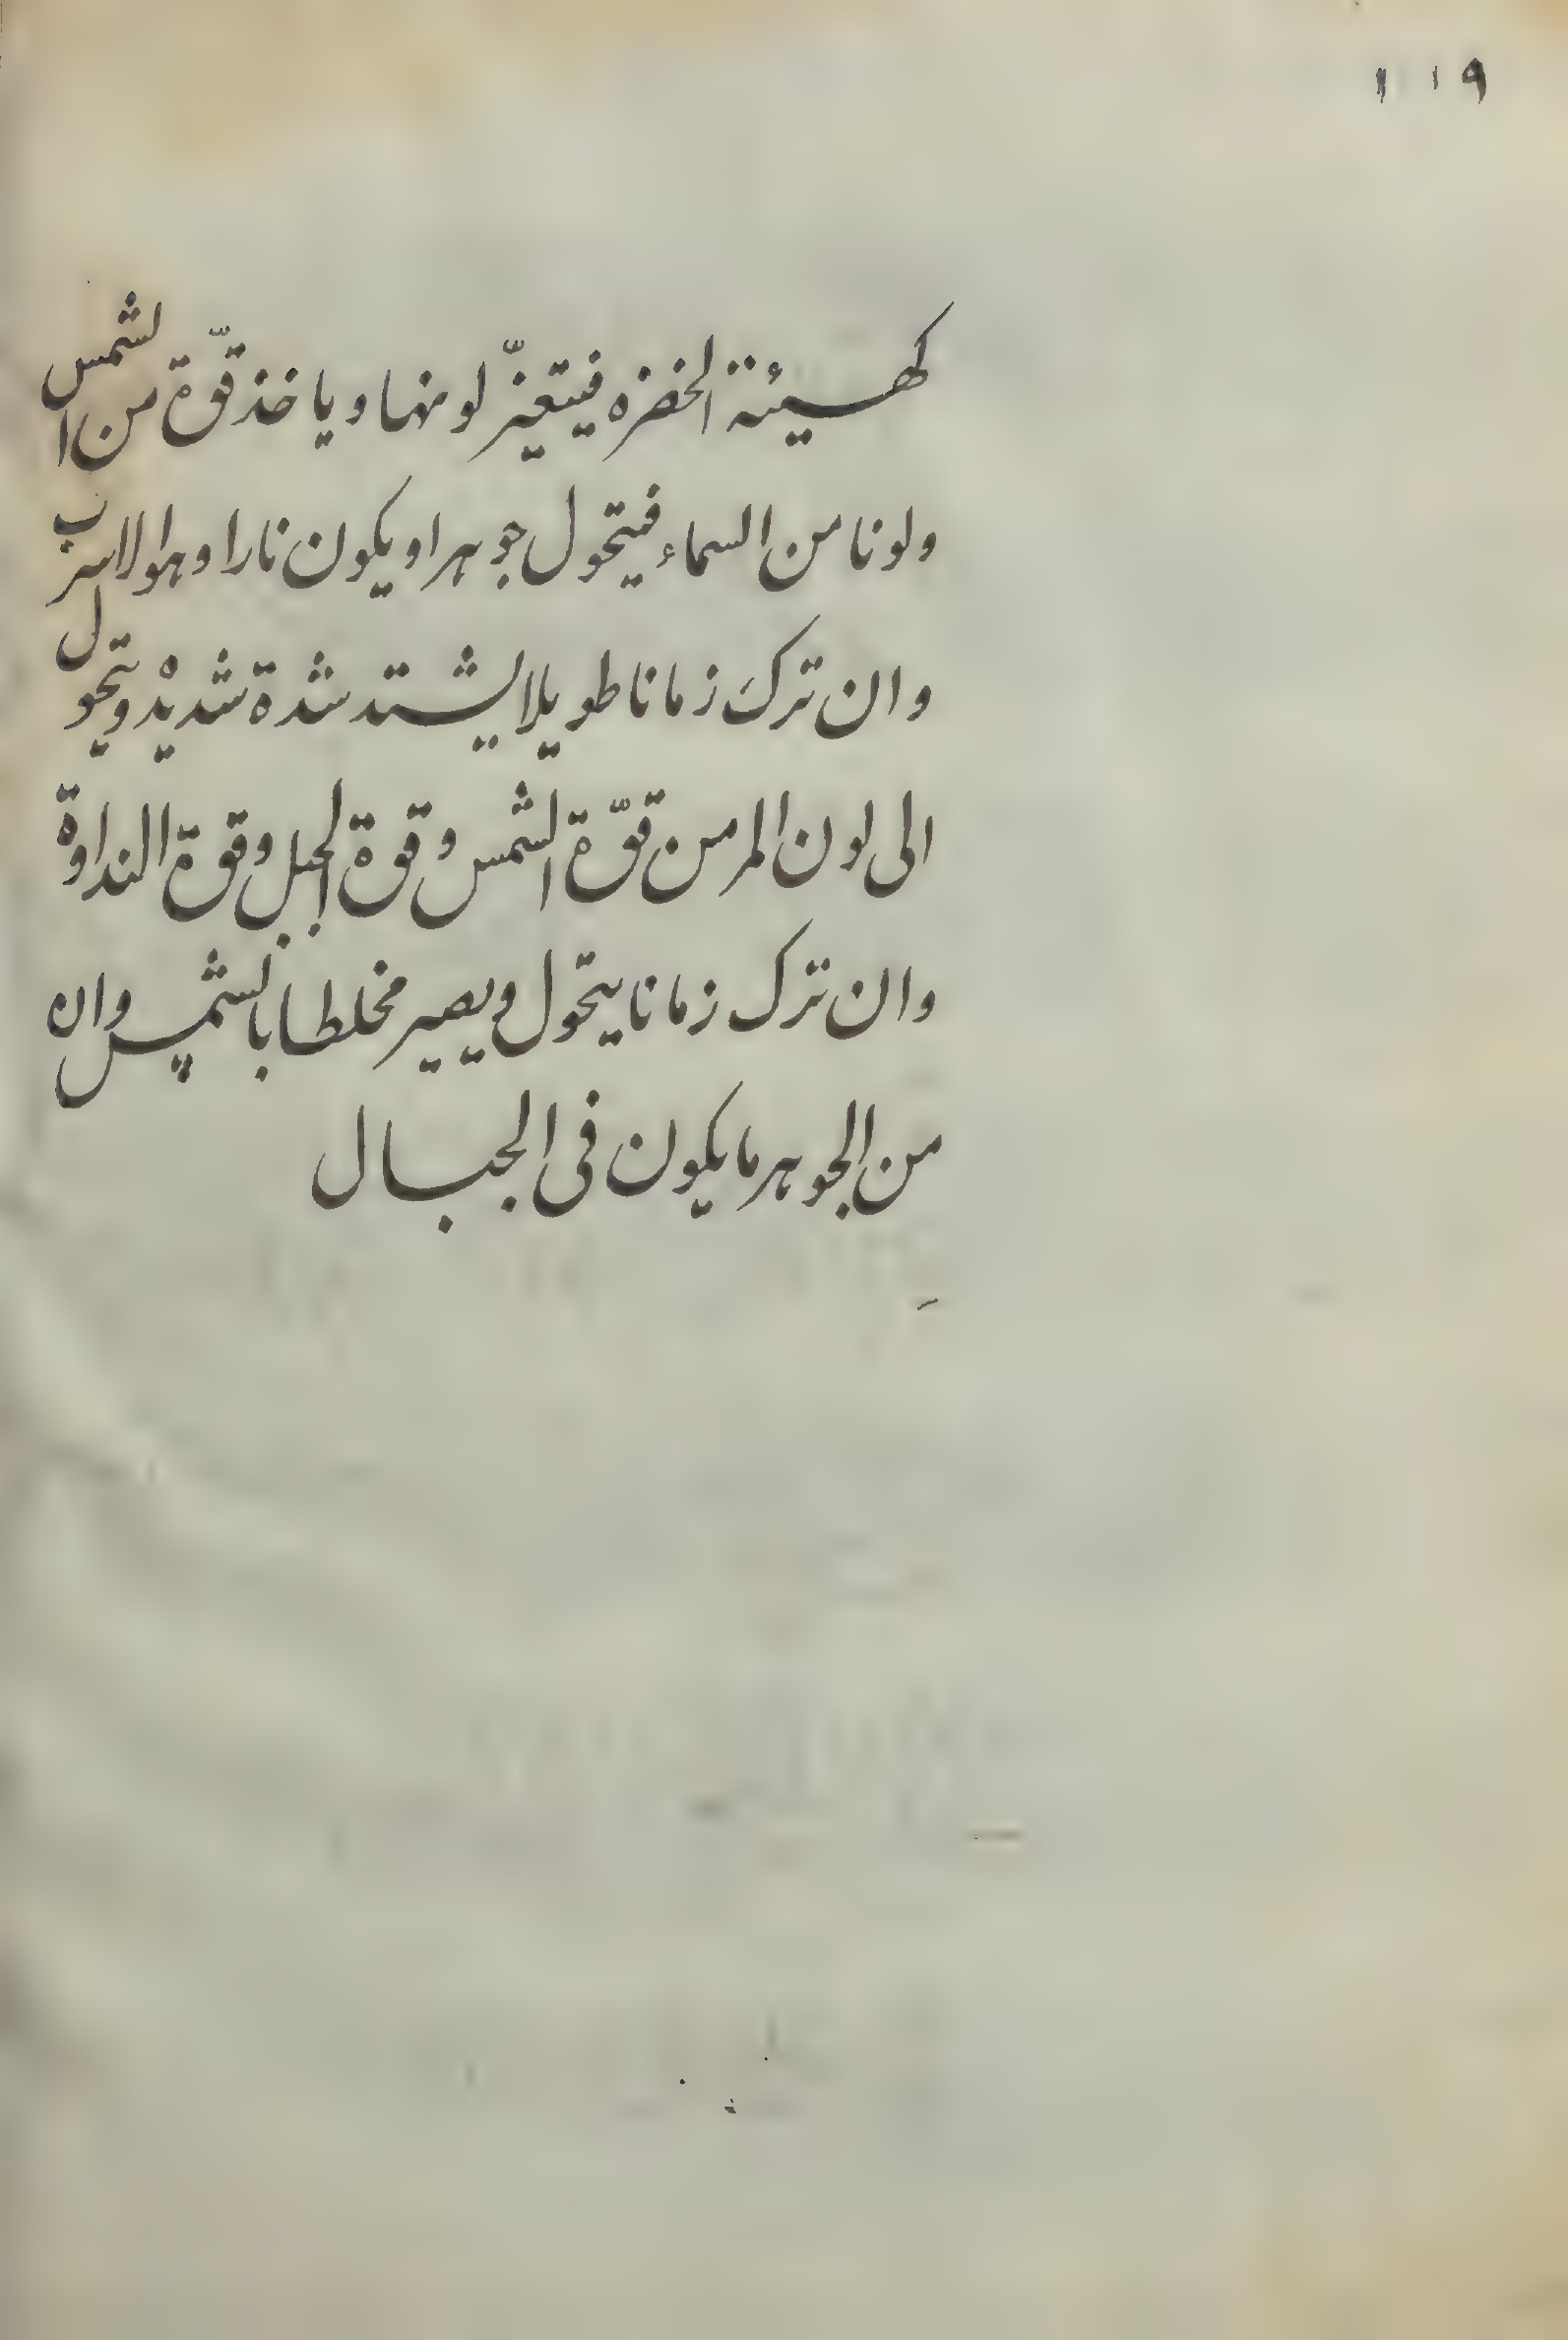 ١١٩
كهيئة الخضره فيتغيّر لونها وياخذ قوّة من الشمس
ولونا من السماء فيتحول جوهرا ويكون نارا وهو الاسرب
وان ترك زمانا طويلا يشتد شدة شديدْ ويتحول
الى لون المر من قوّة الشمس وقوة الجبل وقوة النداوة
وان ترك زمانا يتحول ويصير مخلطا بالشمس وان
من الجوهر ما يكون فى الجبال